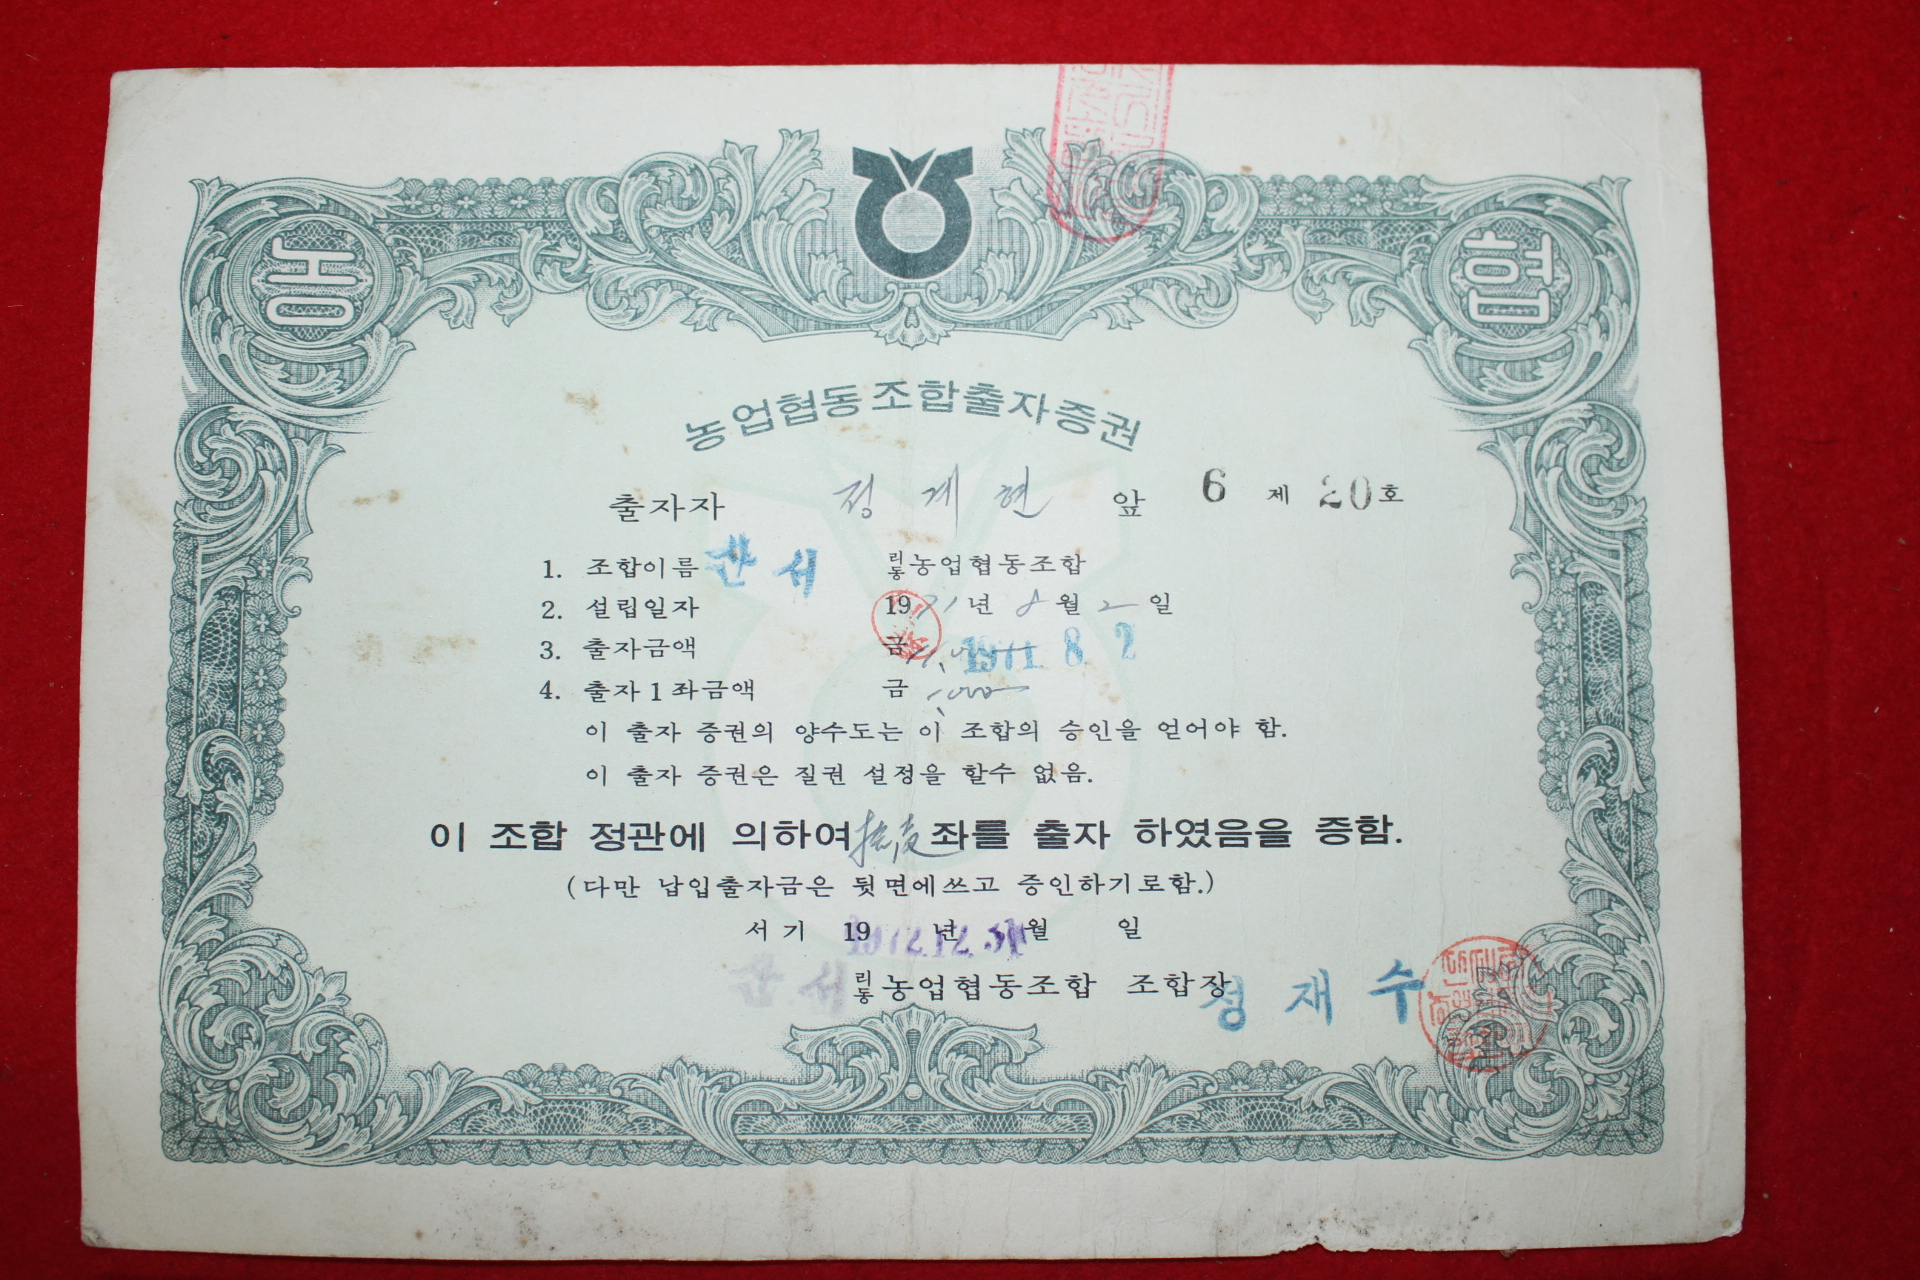 농 협
농업협동조합출자증권
출자자 정계현 앞 6 제 20 호
1. 조합이름 산서 리동 농업협동조합
2. 설립일자 1971년 8월 2일
3. 출자금액 금 1971 8 2
4. 출자1좌금액 금 1,000
이 출자 증권의 양수도는 이 조합의 승인을 얻어야 함.
이 출자 증권은 질권 설정을 할수 없음.
이 조합 정관에 의하여 좌를 출자 하였음을 증함.
(다만 납입출자금은 뒷면에쓰고 증인하기로함.)
서기 19 년 월 일
1972.12.31
산서 리동 농업협동조합 조합장 정재수